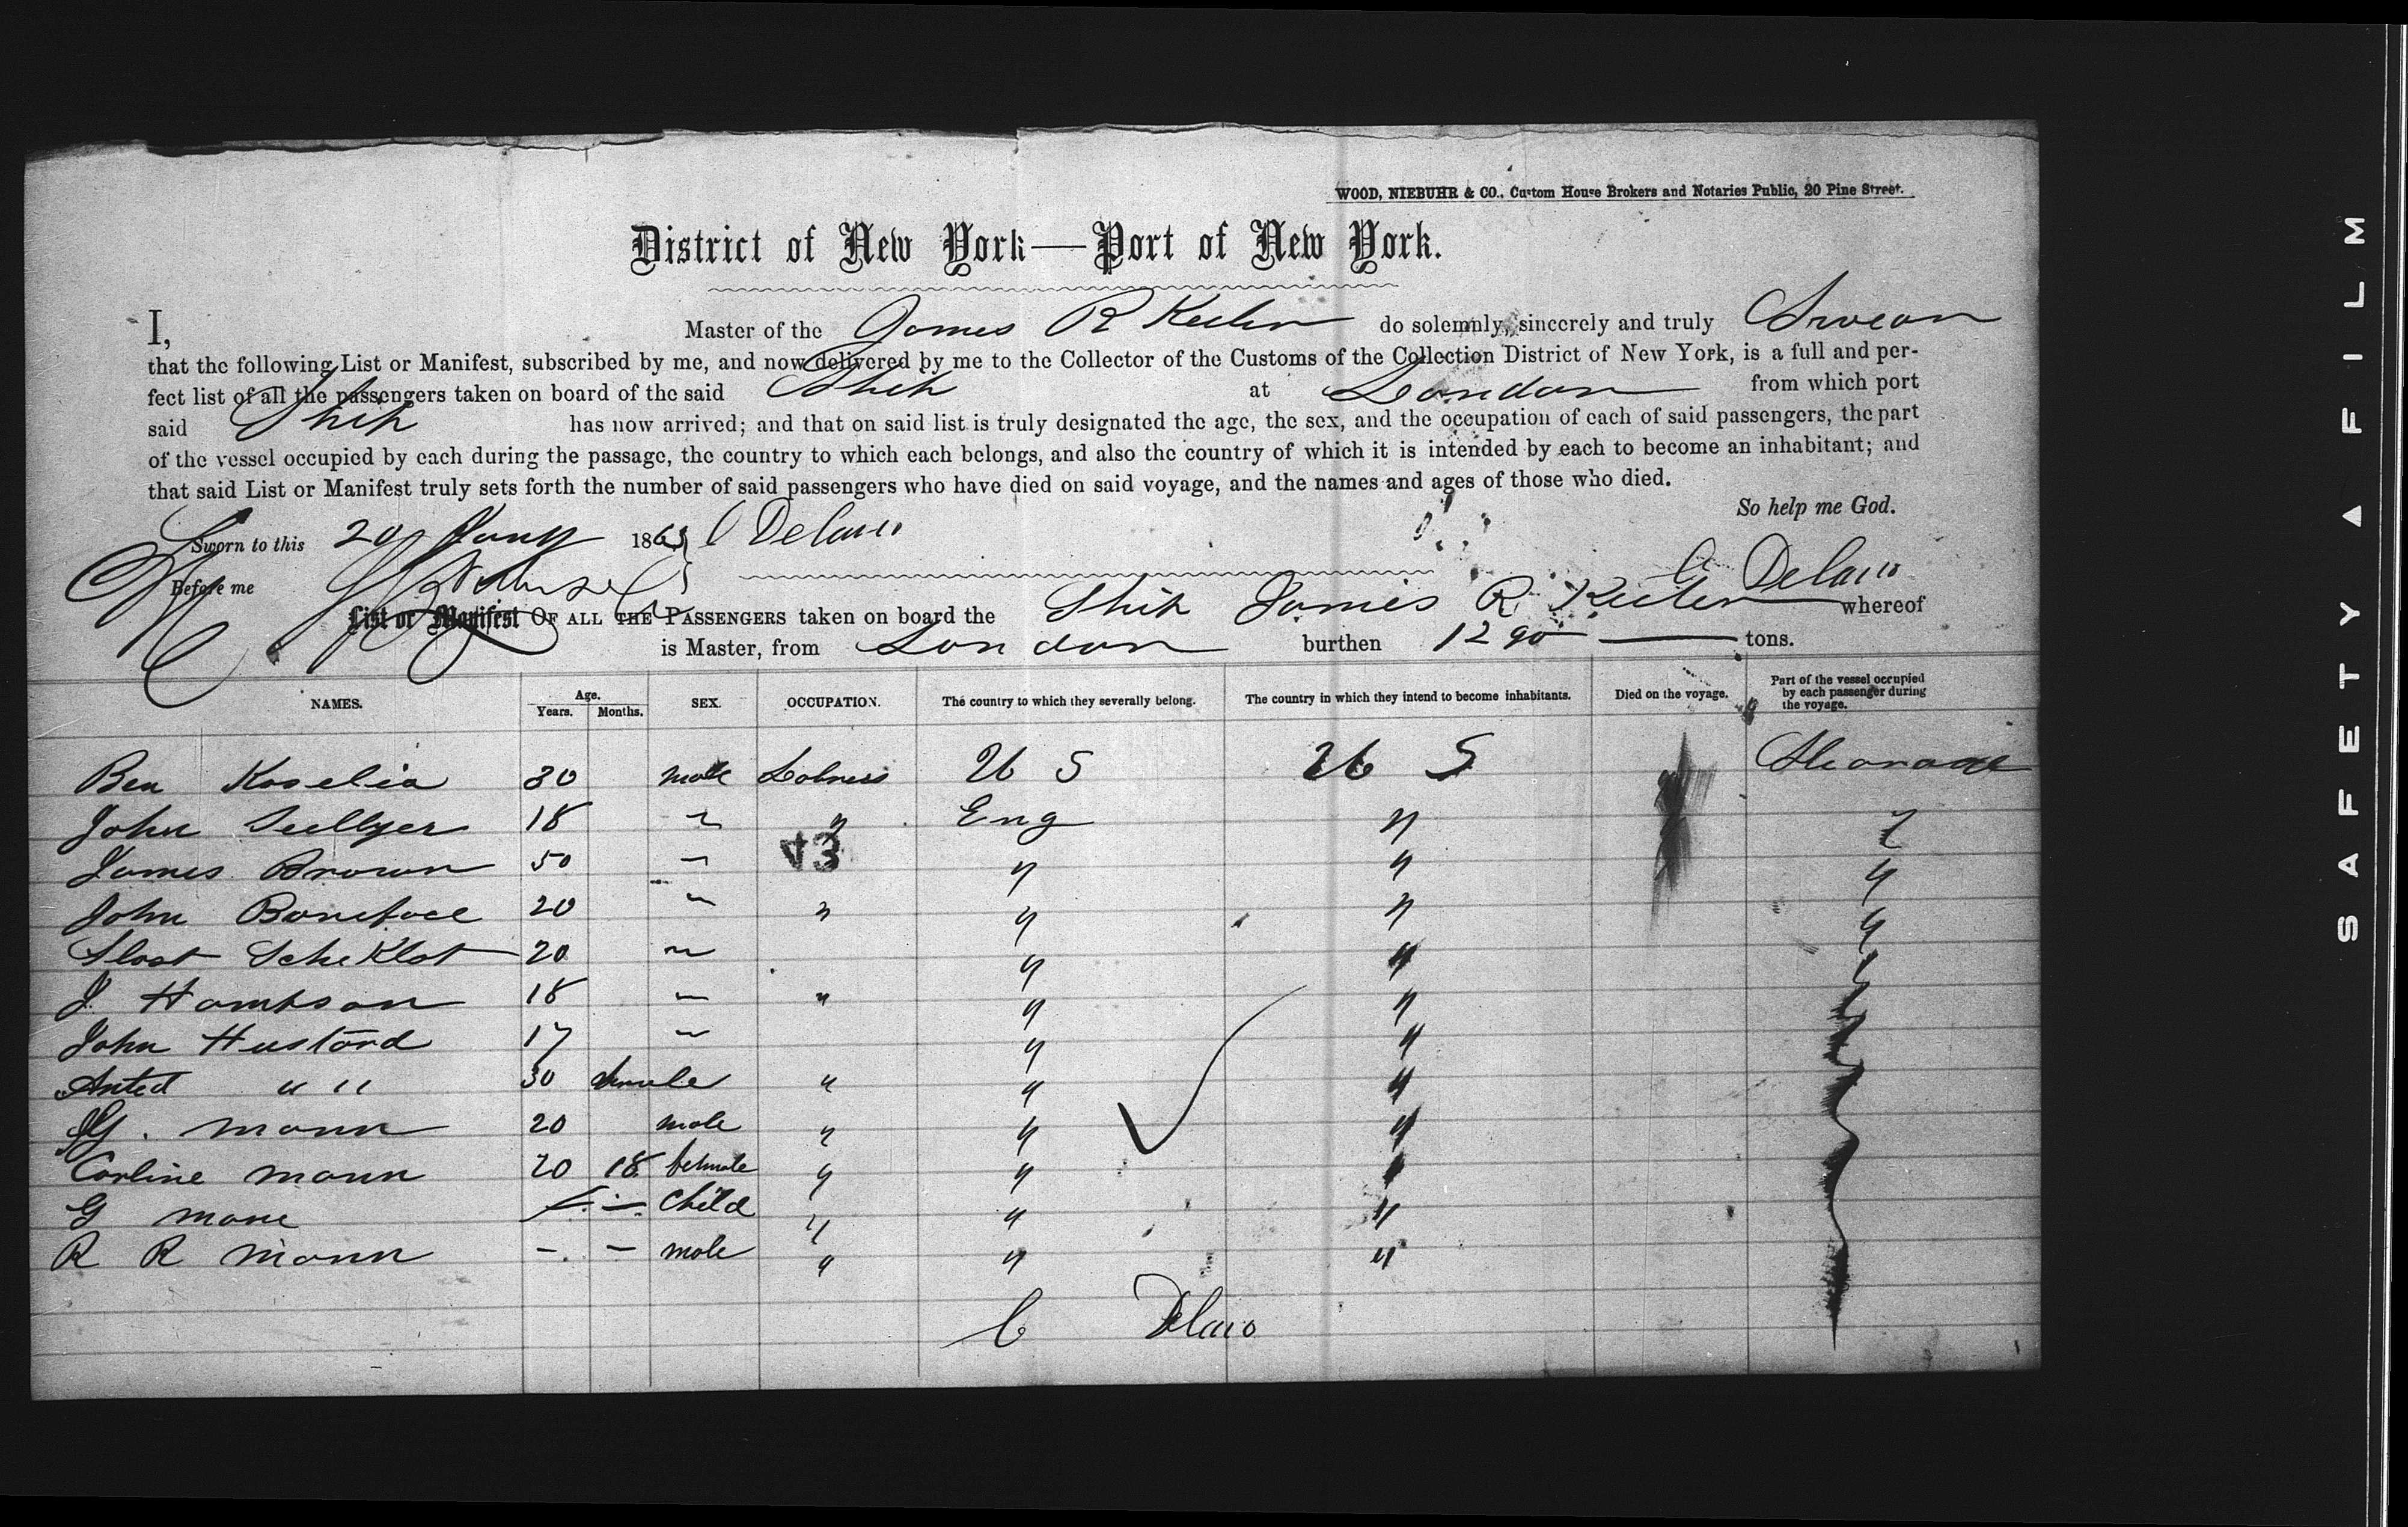 WOOD, NIEBUHR & CO., Custom House Brokers and Notaries Public, 20 Pine Street.
District of New York—Port of New York.
I, Master of the James R Keeler do solemnly, sincerely and truly Swear
that the following List or Manifest, subscribed by me, and now delivered by me to the Collector of the Customs of the Collection District of New York, is a full and per-
fect list of all the passengers taken on board of the said Ship at London from which port
said Ship has now arrived; and that on said list is truly designated the age, the sex, and the occupation of each of said passengers, the part
of the vessel occupied by each during the passage, the country to which each belongs, and also the country of which it is intended by each to become an inhabitant; and
that said List or Manifest truly sets forth the number of said passengers who have died on said voyage, and the names and ages of those who died.
So help me God.
Sworn to this 20 Jany 1863 C Delano
Before me
C Delano
List or Manifest OF ALL THE PASSENGERS taken on board the Ship James R Keeler whereof
is Master, from London burthen 1290 tons.
NAMES. Age. Years. Months. SEX. OCCUPATION. The country to which they severally belong. The country in which they intend to become inhabitants. Died on the voyage. Part of the vessel occupied by each passenger during the voyage.
Ben Koselia 30 male U S U S
John 18 " " Eng " "
43
James Brown 50 " " " "
John Boneface 20 " " " " "
20 " " "
J. 18 " " " "
John Hustord 17 " " "
" " 30 " " "
mann 20 male " " "
Carline mann 20 18 female " " "
G mane child " " "
R R mann - - male " " "
C Delano
SAFETY ▲ FILM